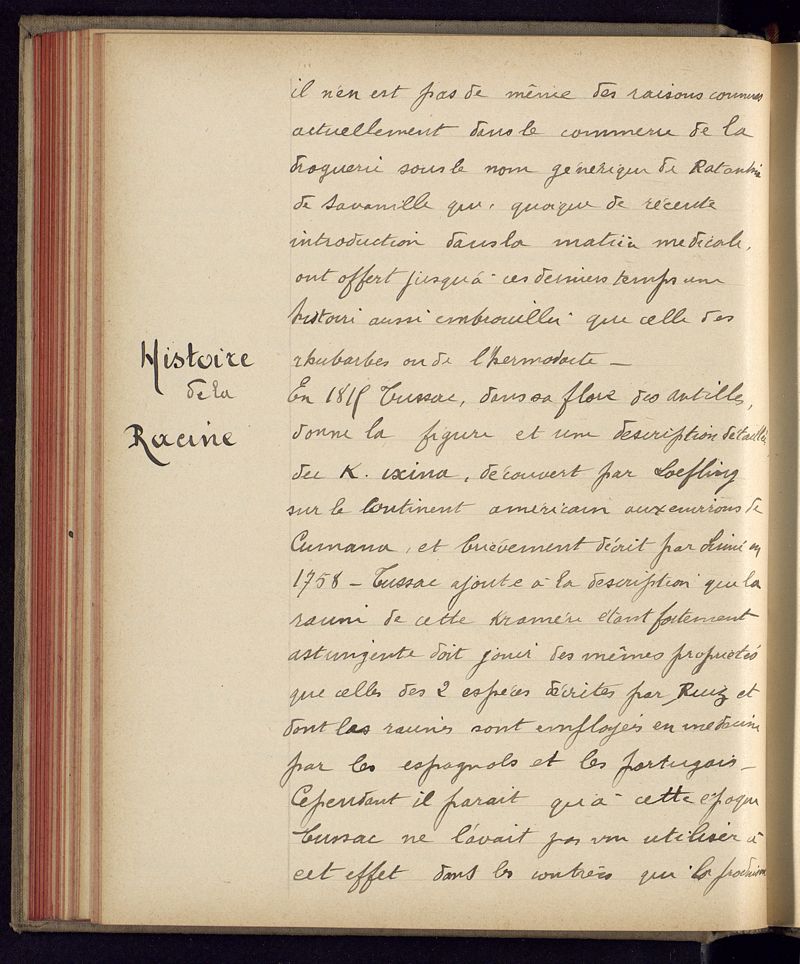 il n'en est pas de même des raisons connues
actuellement dans le commerce de la
droguerie sous le nom générique de Ratanhia
de Savanille qui, quoique de récente
introduction dans la matière médicale,
ont offert jusqu'à ces derniers temps une
histoire aussi embrouillée que celle des
rhubarbes ou de l'hermodacte –
Histoire
de la
Racine
En 1815 Tussac, dans sa flore des Antilles,
donne la figure et une description détaillée
du K. ixina, découvert par Loefling
sur le Continent américain aux environs de
Cumana, et brièvement décrit par Linné en
1758 – Tussac ajoute à la description que la
racine de cette Kramérie étant fortement
astringente doit jouir des mêmes propriétés
que celles des 2 espèces décrites par Ruiz et
dont les racines sont employées en médecine
par les espagnols et les portugais –
Cependant il parait qu'à cette époque
Tussac ne l'avait pas vu utiliser à
cet effet dans les contrées qui la produisent